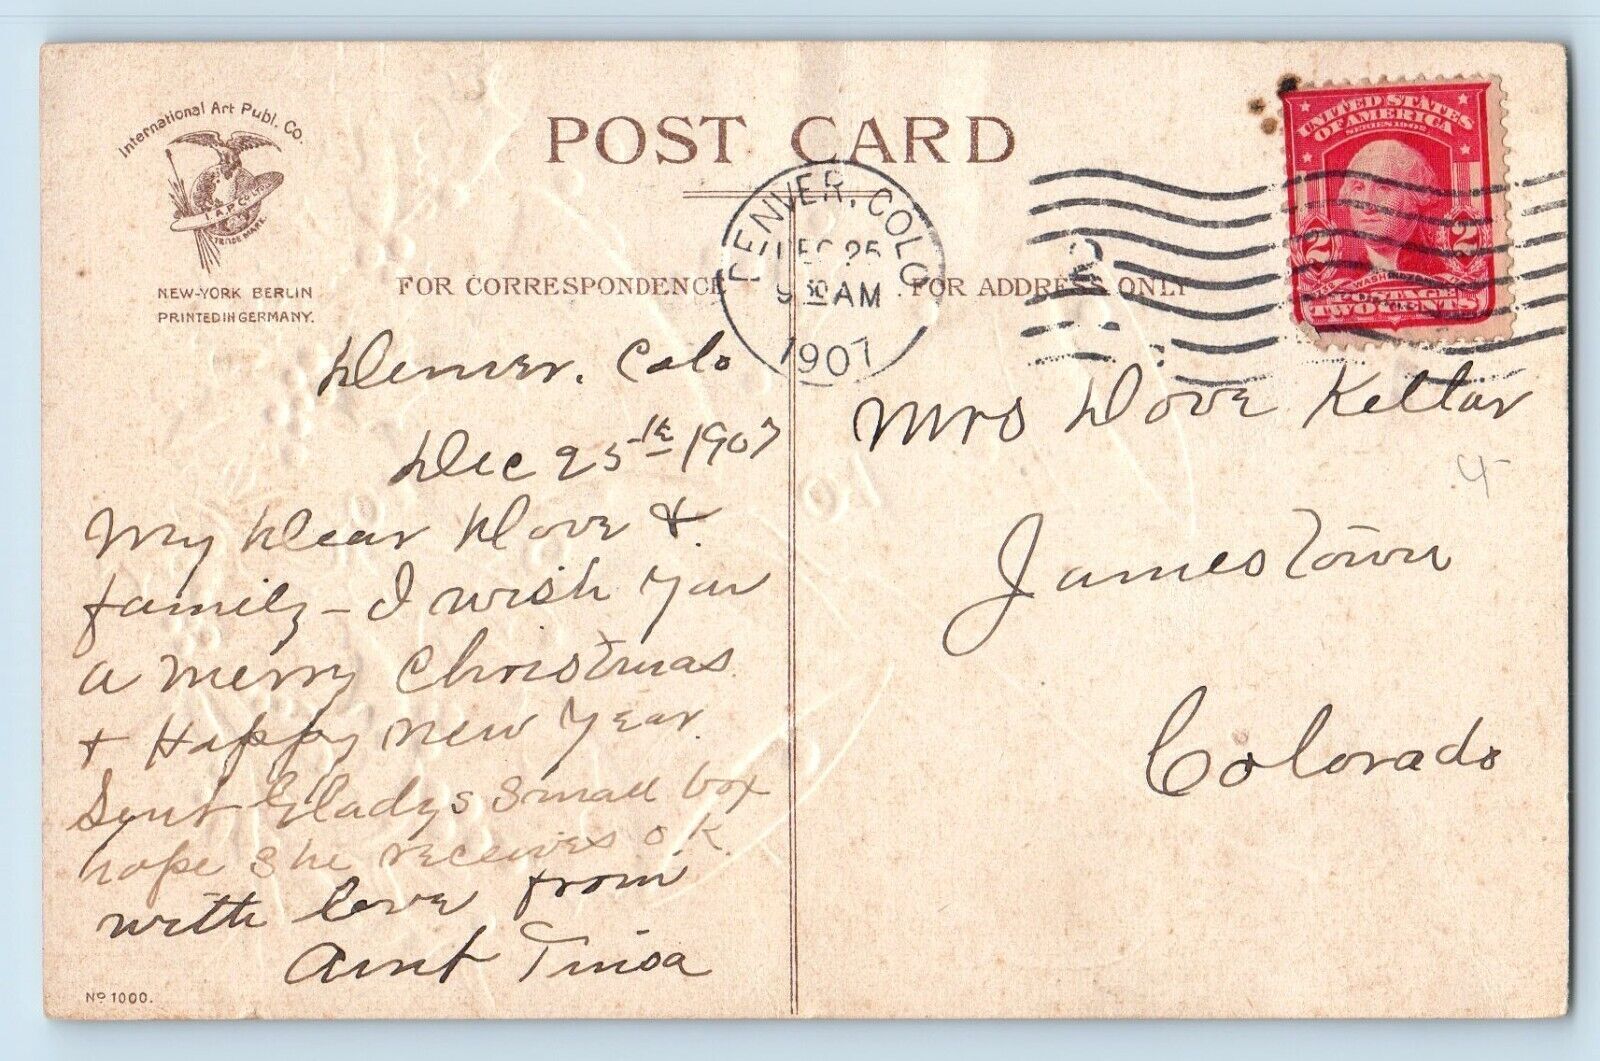 International Art Publ. Co.
I.A.P.CO.
TRADE MARK.
NEW-YORK BERLIN
PRINTED IN GERMANY.
POST CARD
FOR CORRESPONDENCE
FOR ADDRESS ONLY
DENVER, COLO
DEC 25
9 30 AM
1907
UNITED STATES
OF AMERICA
SERIES 1902
2 2
WASHINGTON
POSTAGE
TWO CENTS
Denver, Colo
Dec 25th 1907
My Dear Dove &
family - I wish you
a merry Christmas
& Happy new year.
Sent Gladys small box
hope she receives o k.
with love from
Aunt
Mrs Dove Kellar
Jamestown
Colorado
No 1000.